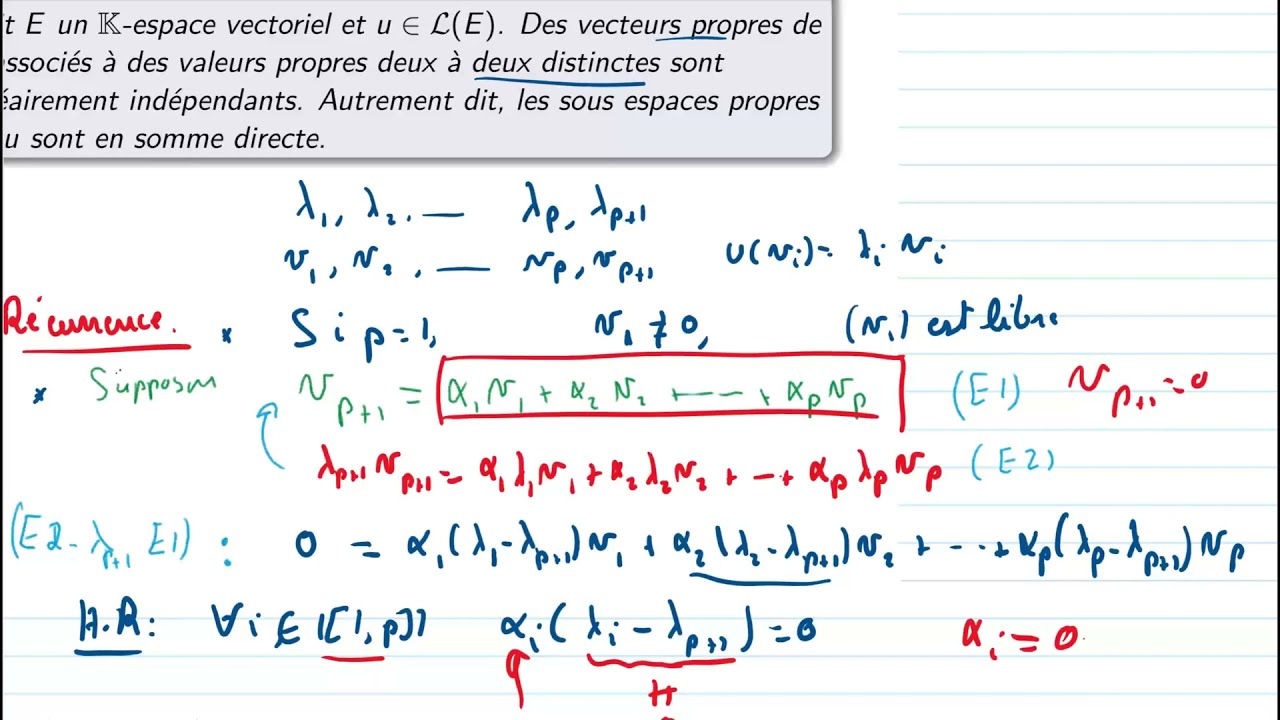 t E un 𝕂-espace vectoriel et u ∈ ℒ(E). Des vecteurs propres de
ssociés à des valeurs propres deux à deux distinctes sont
éairement indépendants. Autrement dit, les sous espaces propres
u sont en somme directe.
λ₁, λ₂, — λp, λp+1
v₁, v₂, — vp, vp+1 u(vi) = λi vi
Récurrence. * Si p = 1, v₁ ≠ 0, (v₁) est libre
* Supposons vp+1 = α₁v₁ + α₂v₂ + --- + αpvp (E1) vp+1 = 0
λp+1 vp+1 = α₁λ₁v₁ + α₂λ₂v₂ + --- + αpλpvp (E2)
(E2 - λp+1 E1) : 0 = α₁(λ₁-λp+1)v₁ + α₂(λ₂-λp+1)v₂ + --- + αp(λp-λp+1)vp
H.R: ∀i ∈ [[1,p]] αi(λi - λp+1) = 0 αi = 0
≠